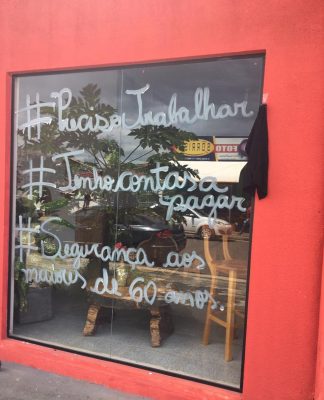 #PrecisoTrabalhar
#Tenho.contas a
pagar
#Segurança aos
maiores de 60 anos.
FOTO